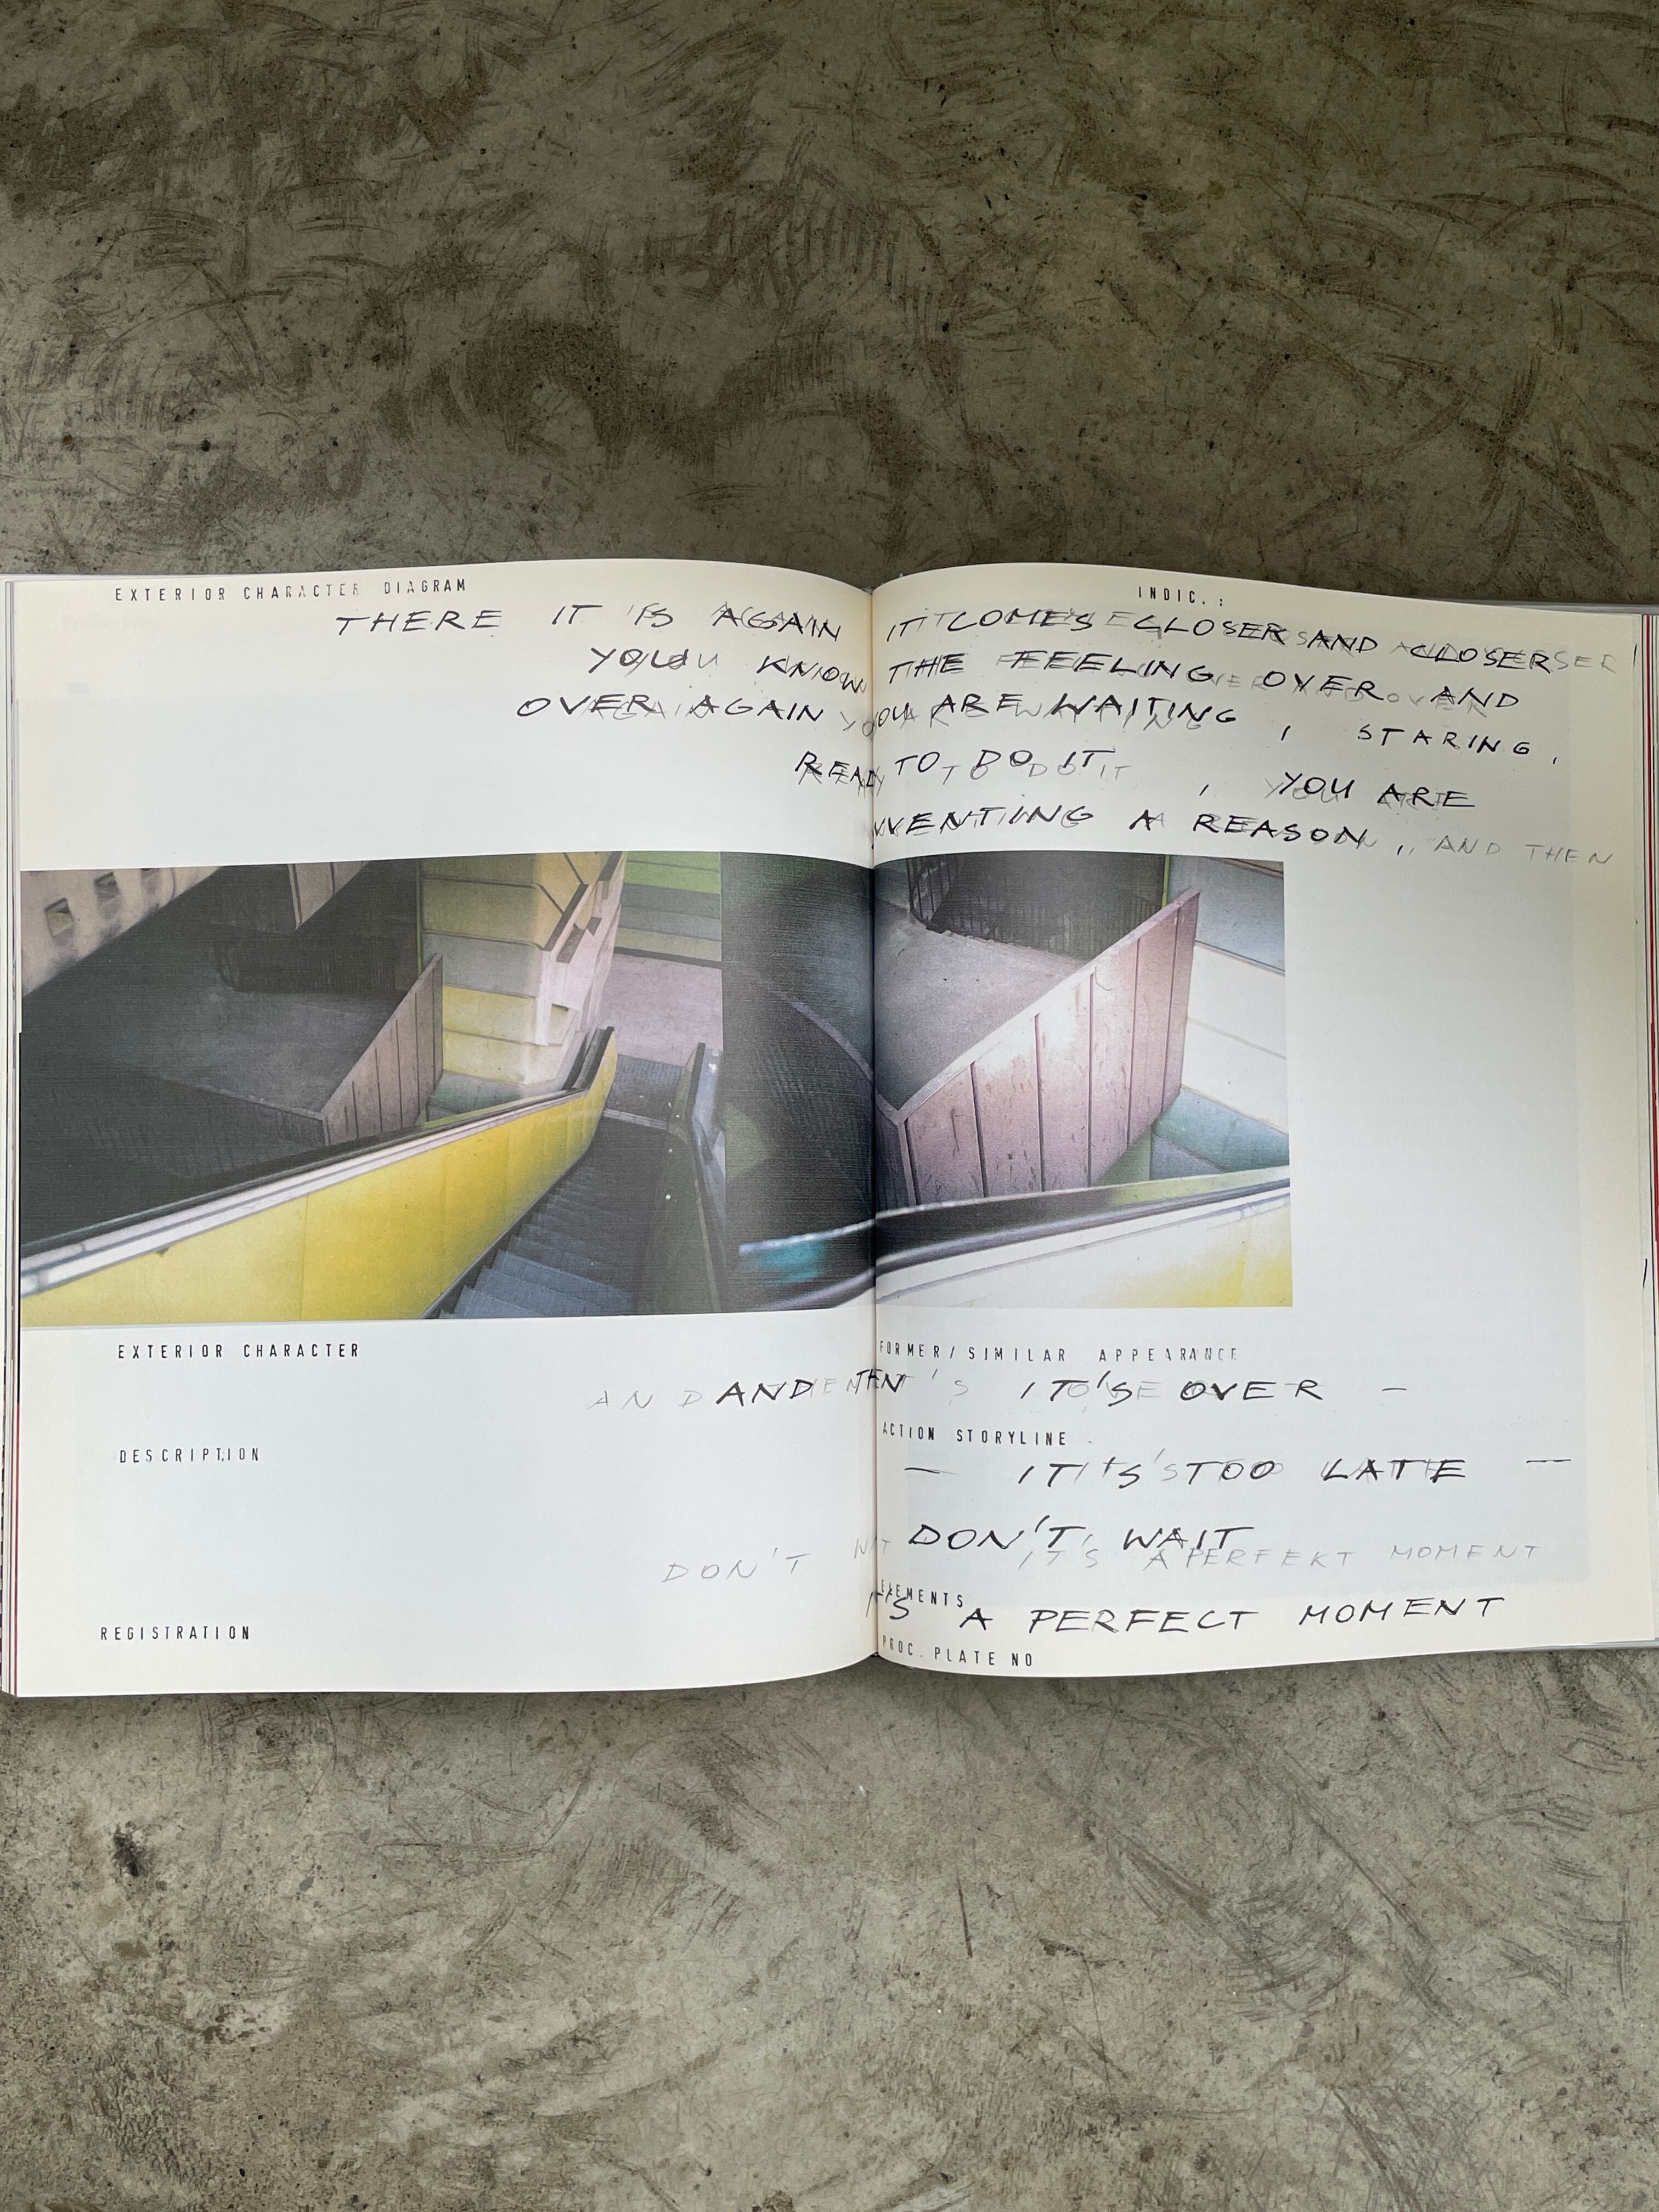 EXTERIOR CHARACTER DIAGRAM INDIC. :
THERE IT IS AGAIN IT COMES CLOSER AND CLOSER
YOU KNOW THE FEELING OVER AND
OVER AGAIN YOU ARE WAITING , STARING ,
READY TO DO IT , YOU ARE
INVENTING A REASON , AND THEN
EXTERIOR CHARACTER FORMER/SIMILAR APPEARANCE
AND THEN IT'S OVER —
DESCRIPTION ACTION STORYLINE
— IT'S TOO LATE —
DON'T WAIT
DON'T IT'S A PERFEKT MOMENT
ELEMENTS
IT'S A PERFECT MOMENT
REGISTRATION PROC. PLATE NO